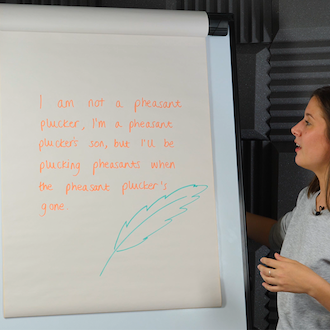 I am not a pheasant
plucker, I'm a pheasant
plucker's son, but I'll be
plucking pheasants when
the pheasant plucker's
gone.